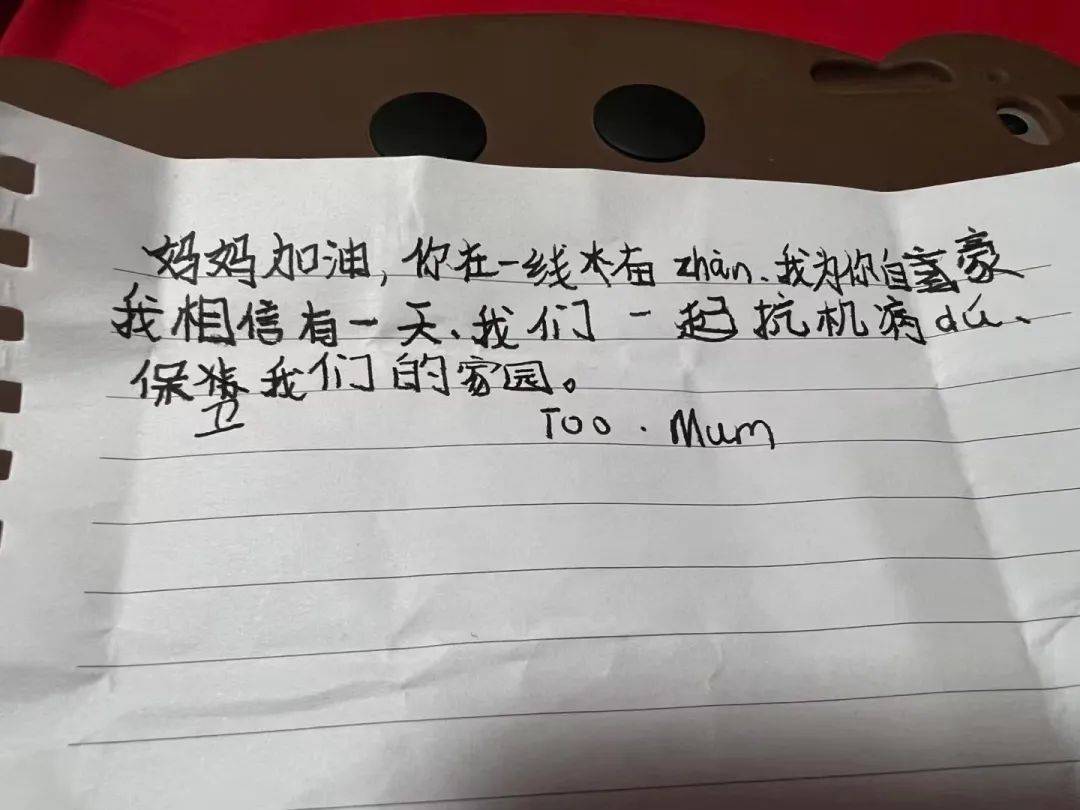 妈妈加油，你在一线 zhàn、我为你自豪
我相信有一天、我们一起抗机病dú、
保卫我们的家园。
Too . Mum